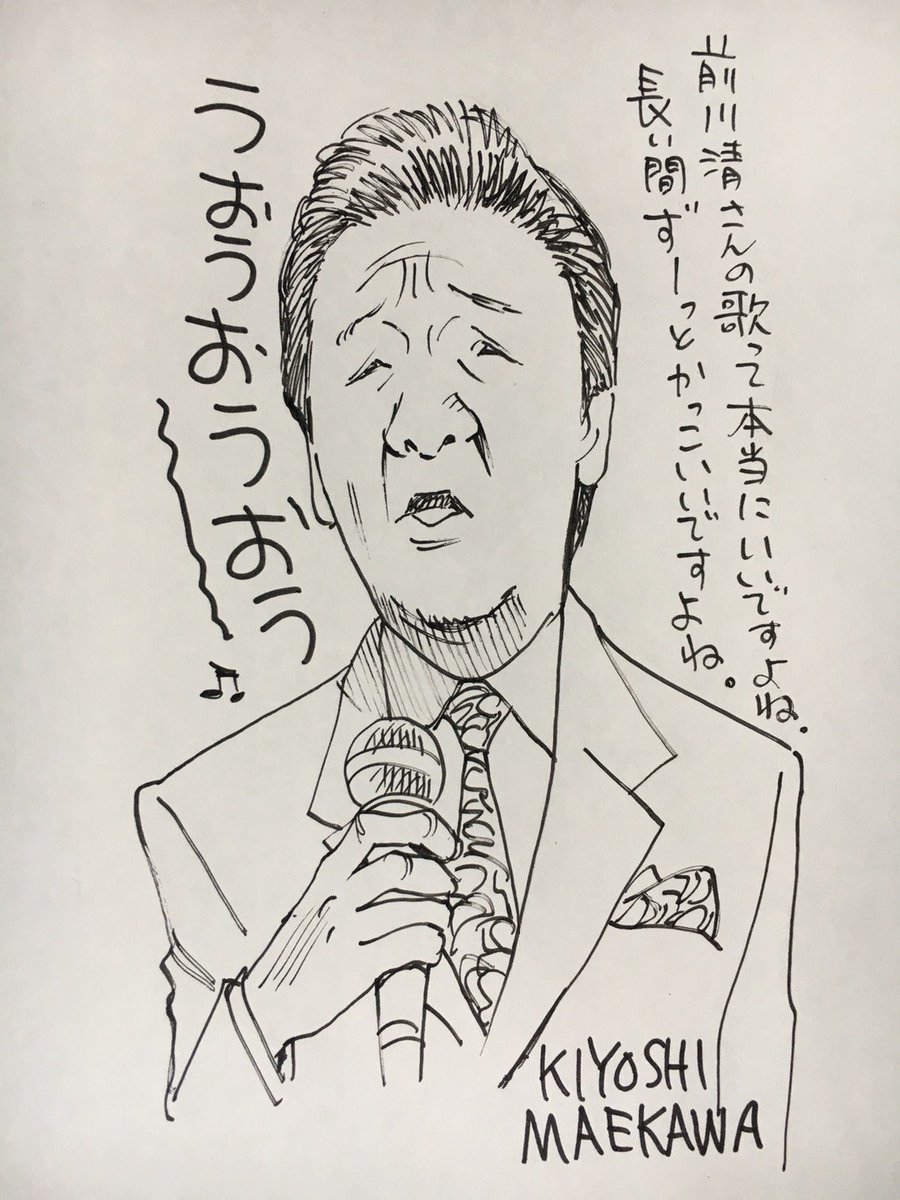 前川清さんの歌って本当にいいですよね.
長い間ずーっとかっこいいですよね.
うおうおうおう
KIYOSHI
MAEKAWA